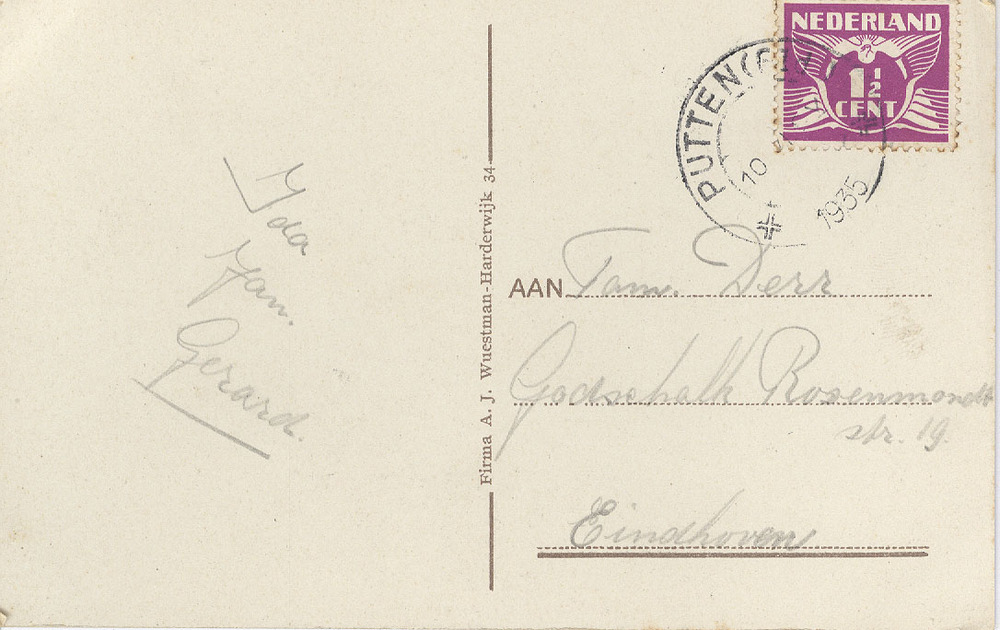 NEDERLAND
1½
CENT
PUTTEN
10
1935
Ida
Jan.
Gerard.
Firma A. J. Wuestman-Harderwijk 34
AAN Fam. Derr
Godschalk Rosenmondt
str. 19.
Eindhoven